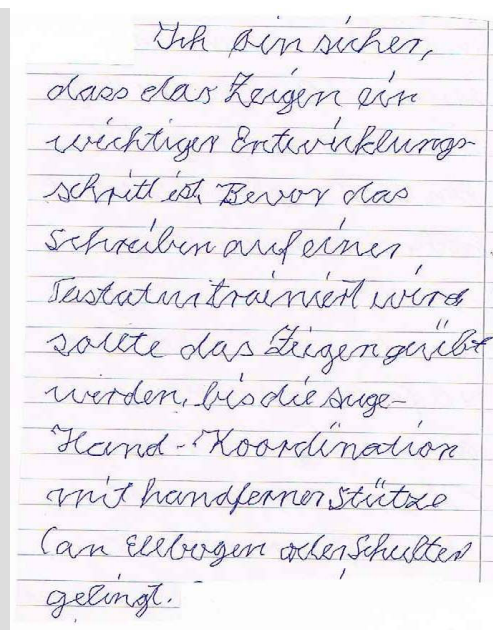 Ich bin sicher,
dass das Zeigen ein
wichtiger Entwicklungs-
schritt ist. Bevor das
Schreiben auf einer
Tastatur trainiert wird
sollte das Zeigen geübt
werden, bis die Auge-
Hand-Koordination
mit handferner Stütze
(an Ellbogen oder Schulter
gelingt.